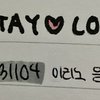 TAY ♡ LO
31104 이리노 응